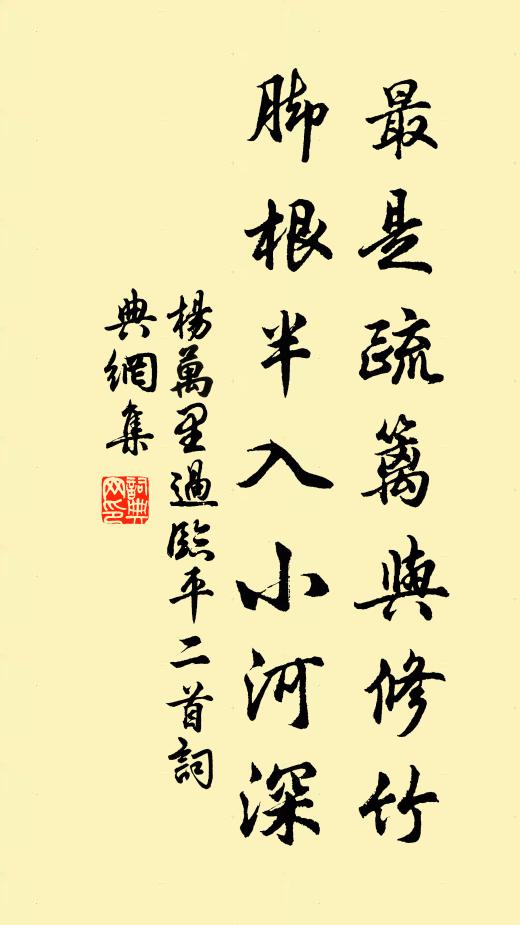 最是疏篱與修竹
脚根半入小河深
楊萬里過臨平二首詞
典網集
詞典
网印